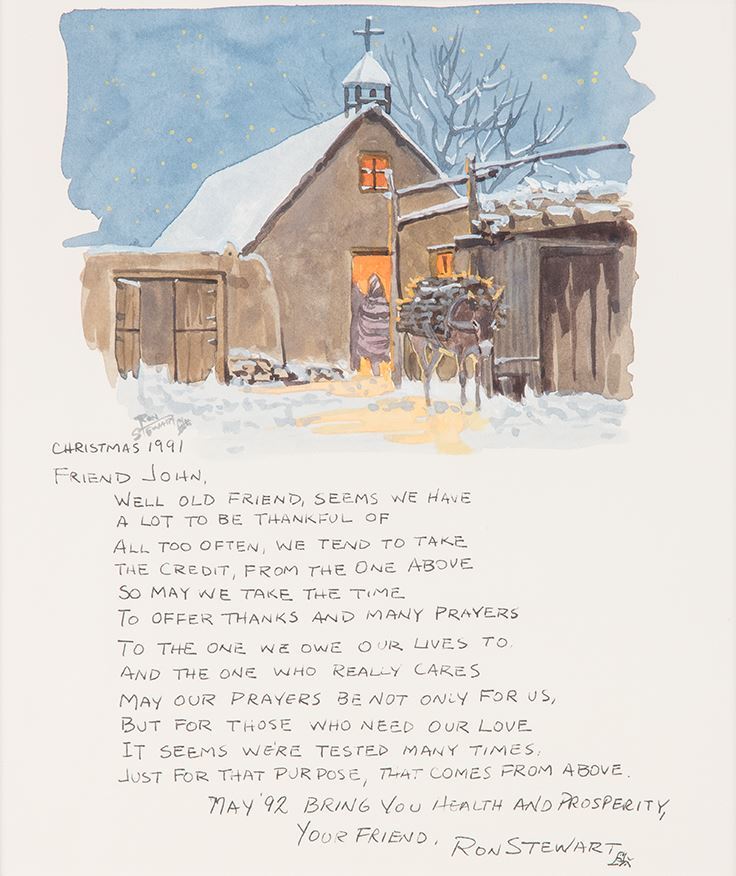 RON
STEWART
CHRISTMAS 1991
FRIEND JOHN,
WELL OLD FRIEND, SEEMS WE HAVE
A LOT TO BE THANKFUL OF
ALL TOO OFTEN, WE TEND TO TAKE
THE CREDIT, FROM THE ONE ABOVE
SO MAY WE TAKE THE TIME
TO OFFER THANKS AND MANY PRAYERS
TO THE ONE WE OWE OUR LIVES TO.
AND THE ONE WHO REALLY CARES
MAY OUR PRAYERS BE NOT ONLY FOR US,
BUT FOR THOSE WHO NEED OUR LOVE
IT SEEMS WE'RE TESTED MANY TIMES.
JUST FOR THAT PURPOSE, THAT COMES FROM ABOVE.
MAY '92 BRING YOU HEALTH AND PROSPERITY,
YOUR FRIEND. RON STEWART